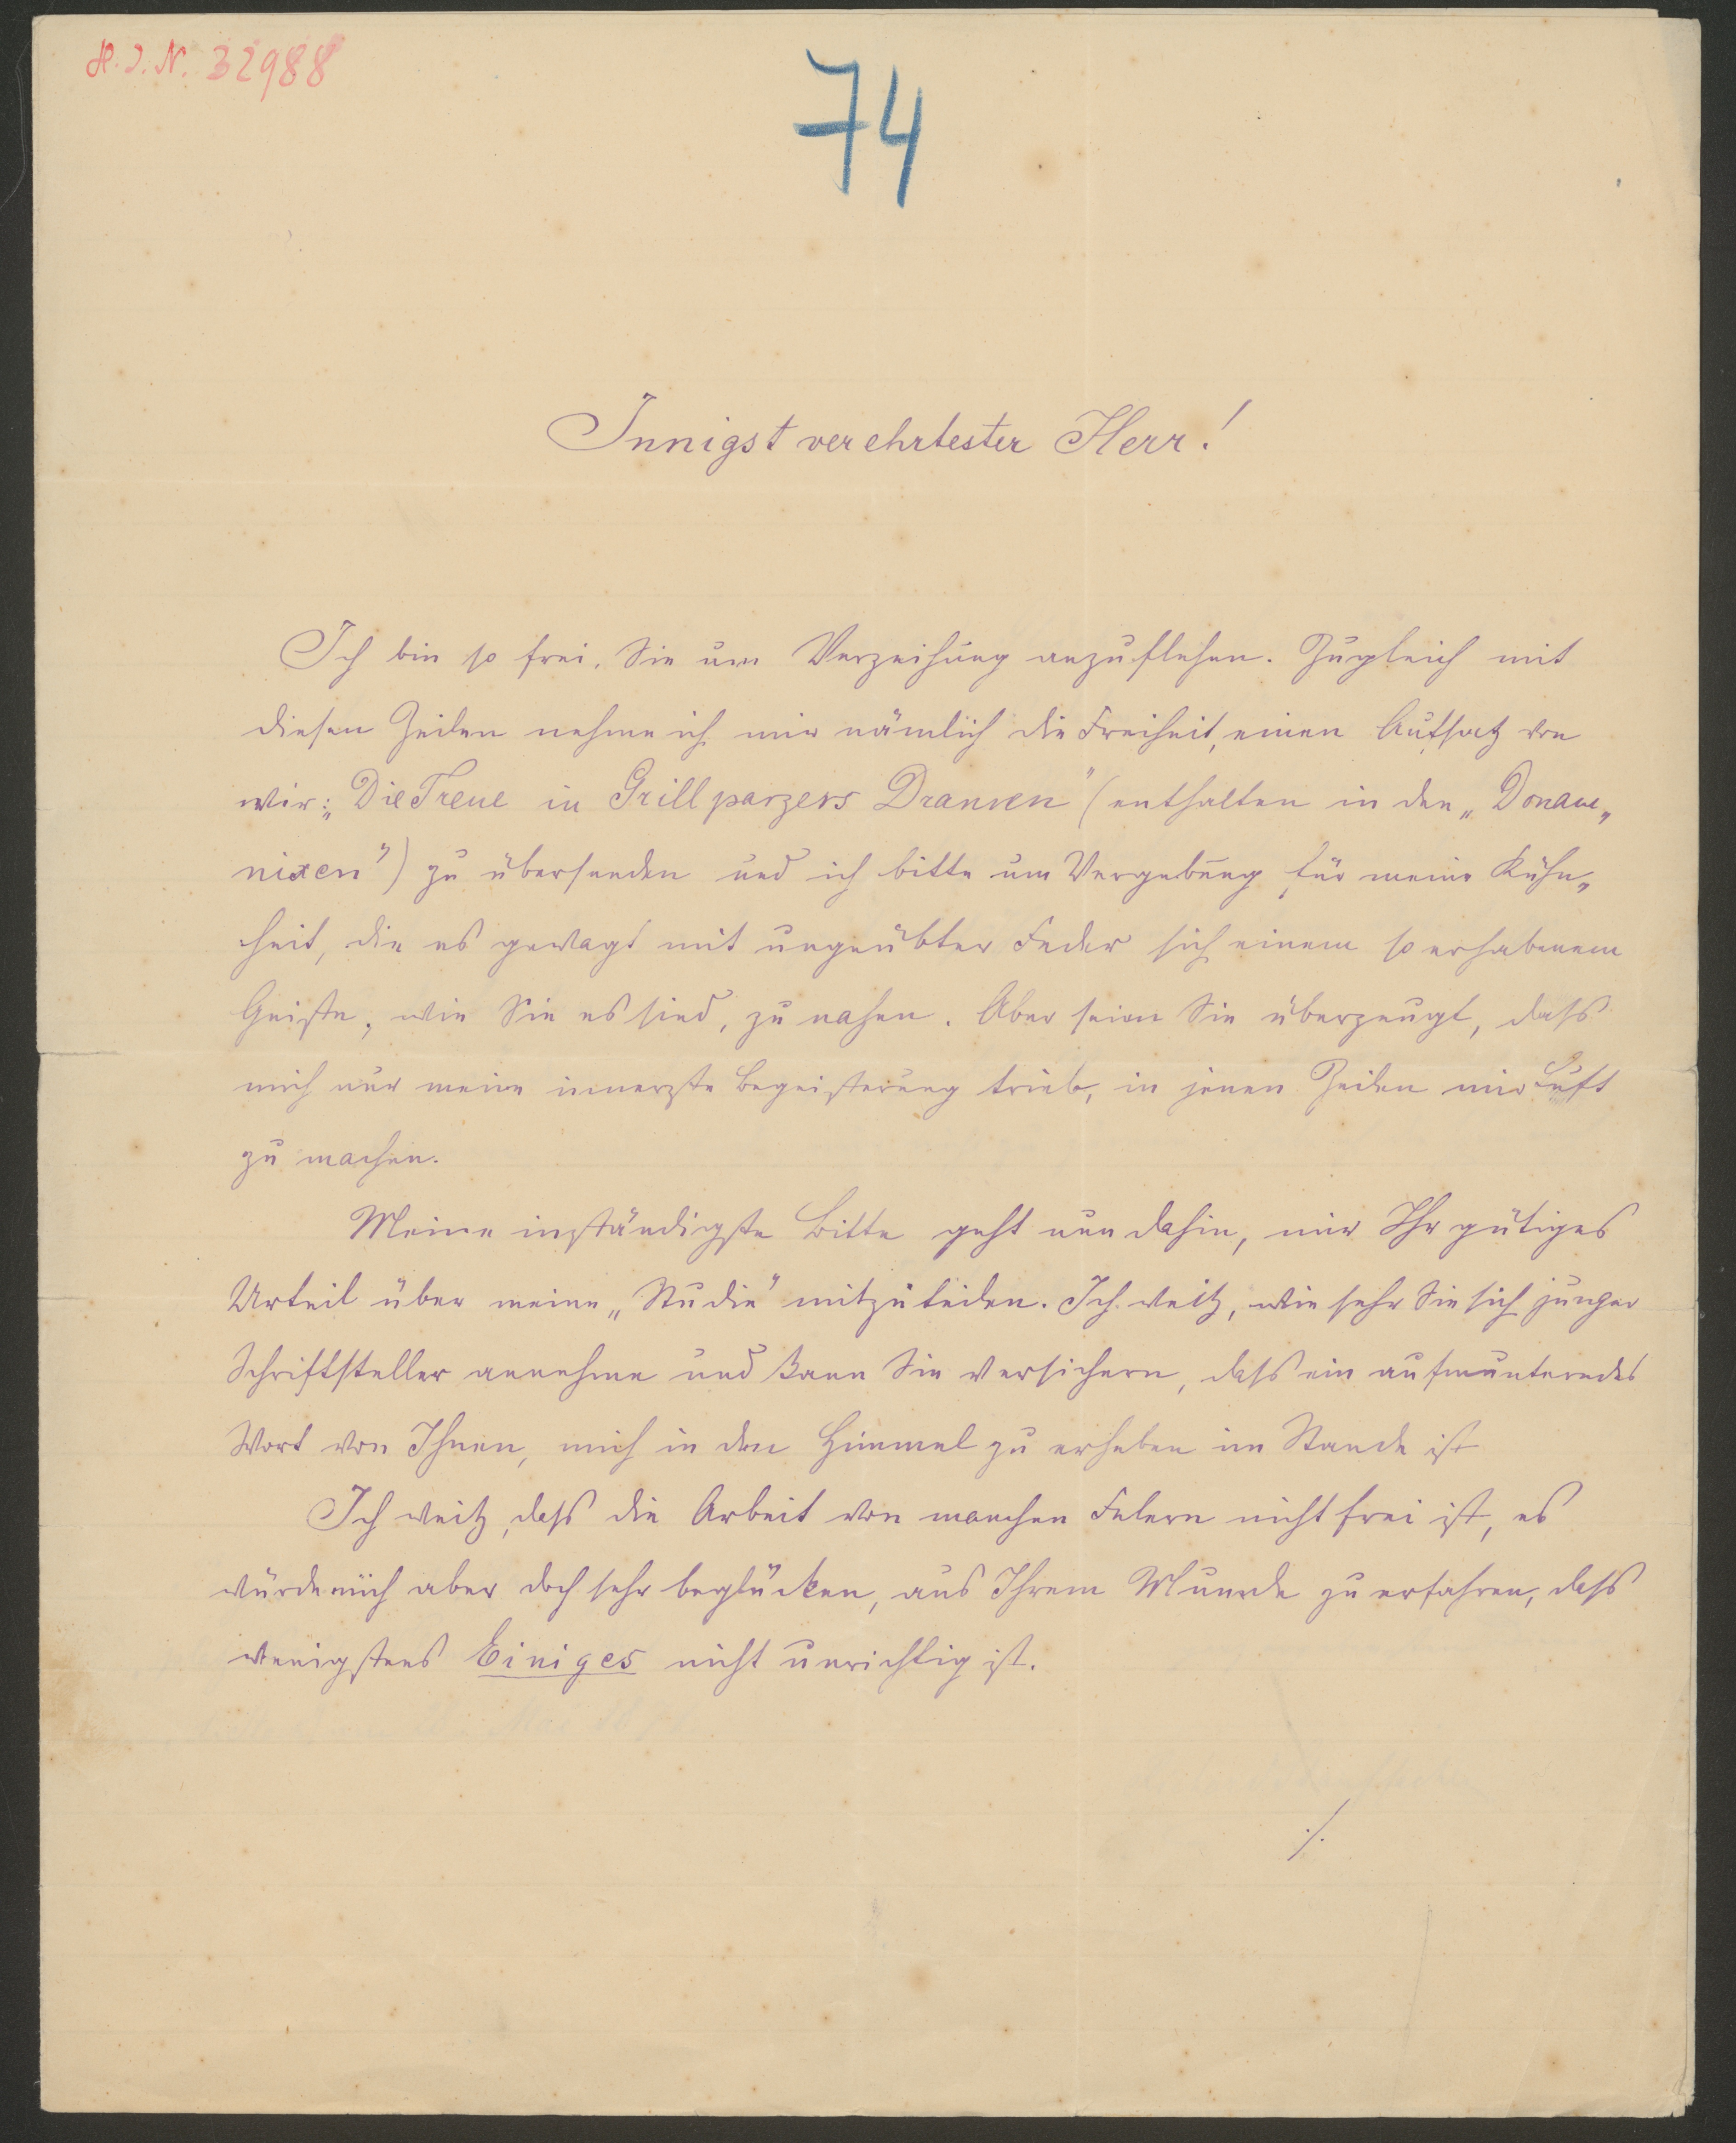 H. I. N. 32988
74
Innigst verehrtester Herr!
Ich bin so frei, Sie um Verzeihung anzuflehen. Zugleich mit
diesen Zeilen nehme ich mir nämlich die Freiheit, einen Aufsatz von
mir: „Die Treue in Grillparzers Dramen" (enthalten in den „Donau„
nixen") zu übersenden und ich bitte um Vergebung für meine Kühn„
heit, die es gewagt mit ungeübter Feder sich einem so erhabenem
Geiste, wie Sie es sind, zu nahen. Aber seien Sie überzeugt, dass
mich nur meine innerste Begeisterung trieb, in jenen Zeilen mir Luft
zu machen.
Meine inständigste Bitte geht nun dahin, mir Ihr gütiges
Urteil über meine „Studie" mitzuteilen. Ich weiß, wie sehr Sie sich junger
Schriftsteller annehme und kann Sie versichern, dass ein aufmunterndes
Wort von Ihnen, mich in den Himmel zu erheben im Stande ist
Ich weiß, dass die Arbeit von manchen Felern nicht frei ist, es
würde mich aber doch sehr beglücken, aus Ihrem Munde zu erfahren, dass
wenigstens Einiges nicht unrichtig ist.
./.